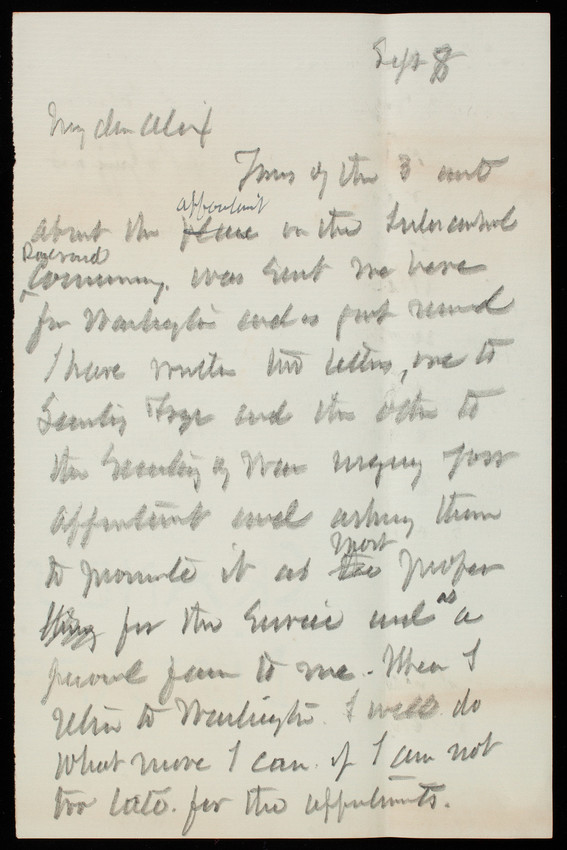 Sept 8
My dear Alex
Yours of the 3 inst
appointmt
about the place on the Intercontinental
Railroad
Commission. was sent me here
from Washington and is just received
I have written two letters, one to
Secretary Tracy and the other to
the Secretary of War urging your
appointmt and asking them
most
to promote it as the proper
thing for the Service and as a
personal favor to me. When I
return to Washington. I will do
what more I can. if I am not
too late. for the appointmts.